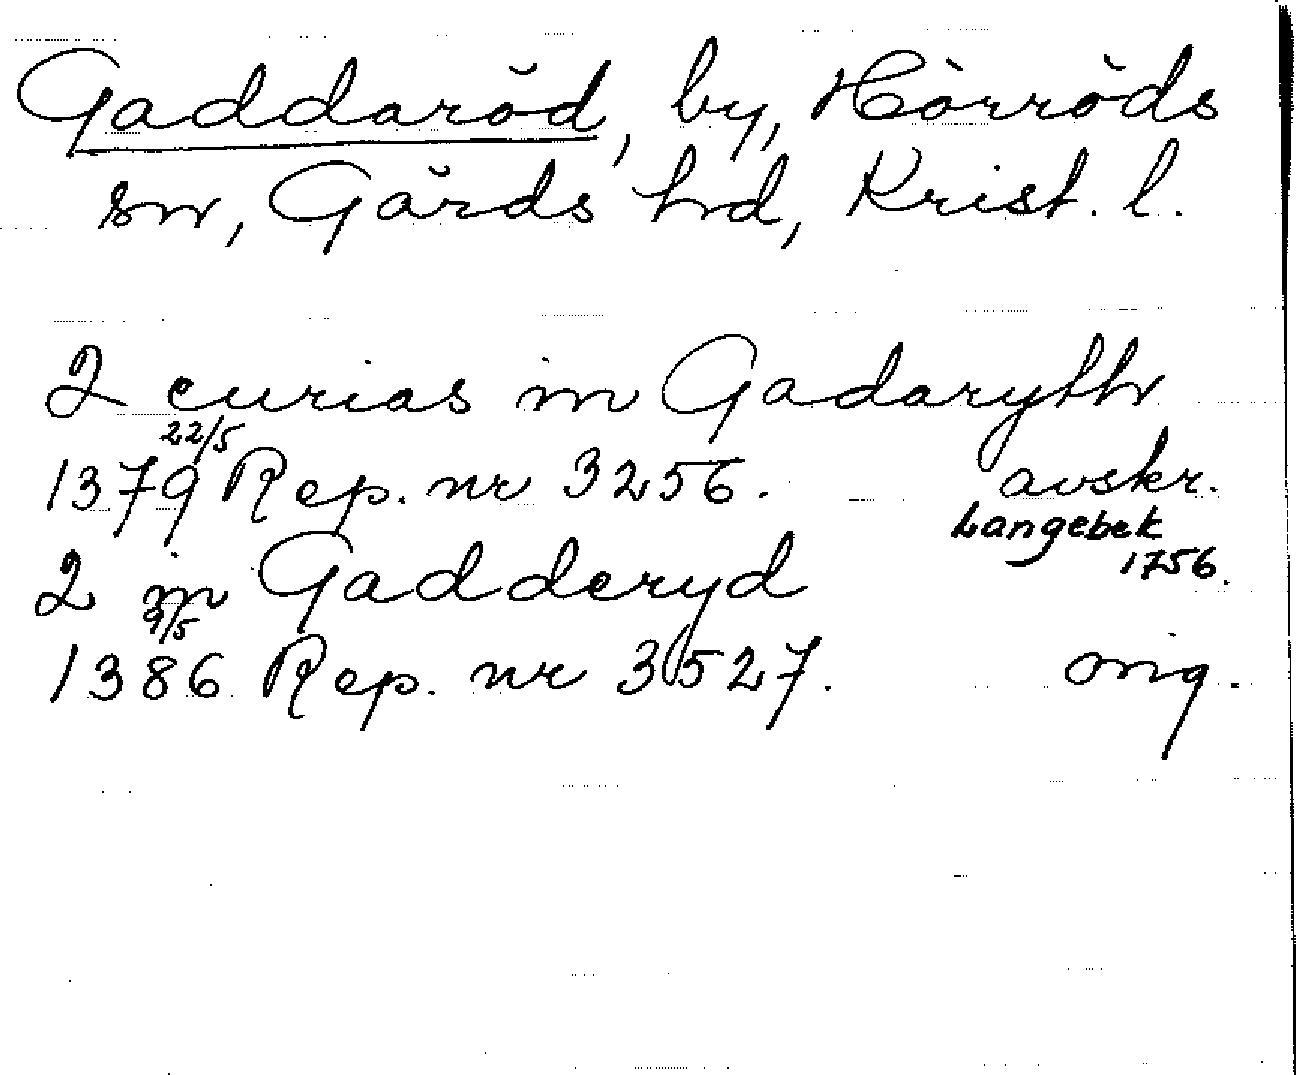 Gaddaröd, by, Hörröds
sn, Gärds hd, Krist. l.
2 curias in Gadaryth
22/5
1379 Rep. nr 3256. avskr.
Langebek
1756.
2 in Gadderyd
9/5
1386 Rep. nr 3527. orig.